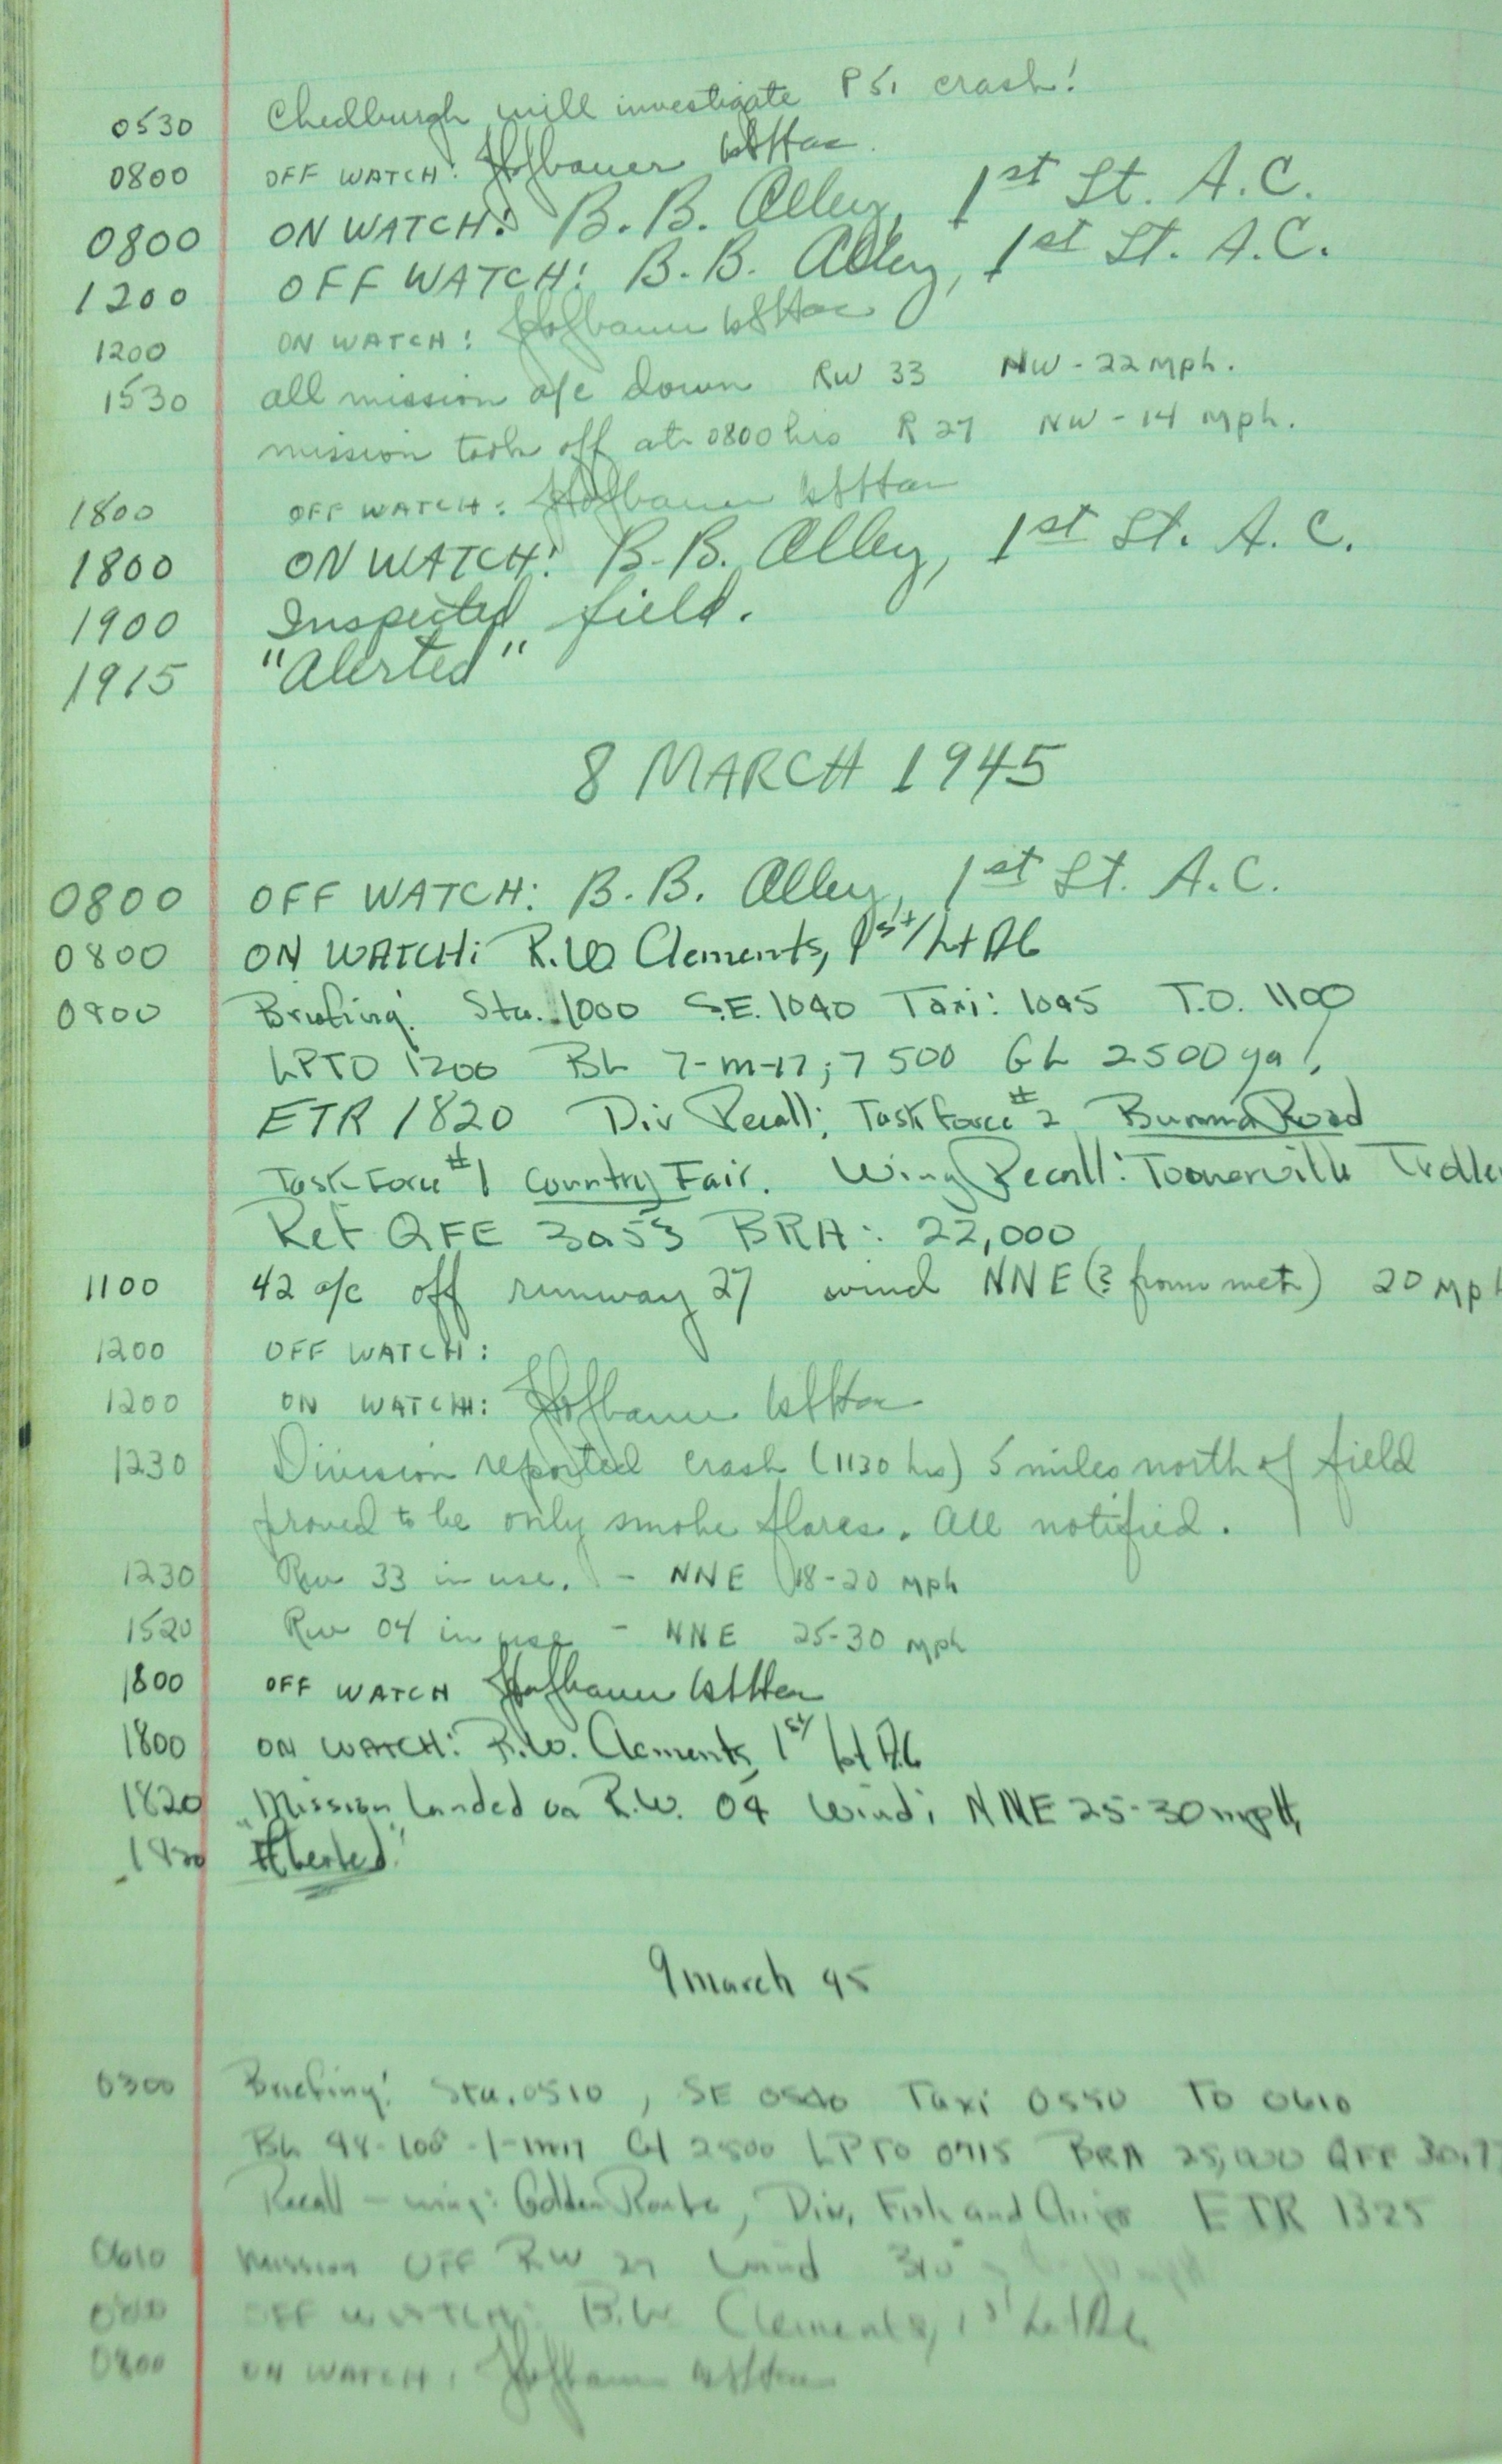 0530 Chedburgh will investigate P51 crash!
0800 OFF WATCH: Hofbauer 1st Lt ac.
0800 ON WATCH: B.B. Alley, 1st Lt. A.C.
1200 OFF WATCH: B.B. Alley, 1st Lt. A.C.
1200 ON WATCH: Hofbauer 1st Lt ac
1530 all mission a/c down RW 33 NW - 22 mph.
mission took off at 0800 hrs R 27 NW - 14 mph.
1800 OFF WATCH: Hofbauer 1st Lt ac
1800 ON WATCH: B.B. Alley, 1st Lt. A.C.
1900 Inspected field.
1915 "Alerted"
8 MARCH 1945
0800 OFF WATCH: B.B. Alley, 1st Lt. A.C.
0800 ON WATCH: R.W. Clements, 1st/Lt AC
0800 Briefing: Sta. 1000 S.E. 1040 Taxi: 1045 T.O. 1100
LPTO 1200 BL 7-M-17; 7 500 GL 2500 ga!
ETR 1820 Div Recall: Task Force #2 Burma Road
Task Force #1 Country Fair. Wing Recall: Toonerville Trolle
Ref QFE 3053 BRA: 22,000
1100 42 a/c off runway 27 wind NNE (? from met) 20 mph
1200 OFF WATCH:
1200 ON WATCH: Hofbauer 1st Lt ac
1230 Division reported crash (1130 hrs) 5 miles north of field
proved to be only smoke flares. All notified.
1230 Rw 33 in use. - NNE 18-20 mph
1520 Rw 04 in use - NNE 25-30 mph
1800 OFF WATCH Hofbauer 1st Lt ac
1800 ON WATCH: R.W. Clements, 1st Lt AC
1820 Mission Landed on R.W. 04 Wind: NNE 25-30 mph
"Alerted"
9 March 45
0300 Briefing: Sta. 0510, SE 0540 Taxi 0550 TO 0610
BL GL 2500 LPTO 0715 BRA 25,000 QFE
Recall - wing: Golden Route, Div. Fish and Chips ETR 1325
0610 Mission OFF RW 27 Wind 310
OFF WATCH: R.W. Clements, 1st Lt AC
0800 ON WATCH: Hofbauer 1st Lt ac